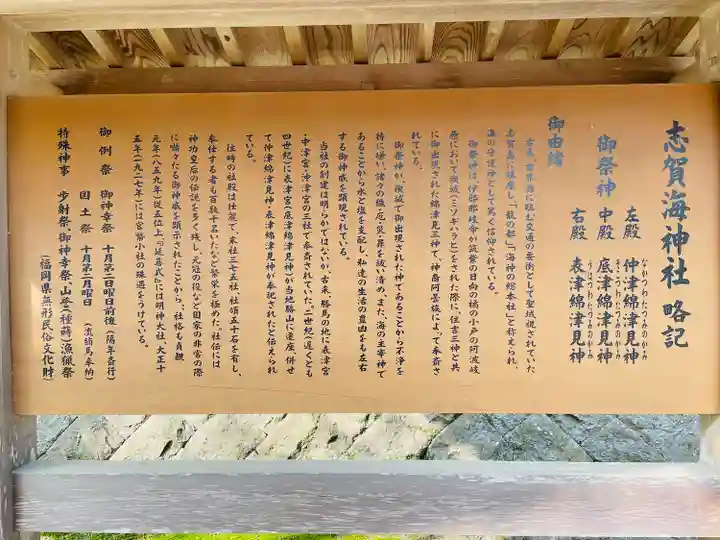 志賀海神社 略記
御祭神
左殿 仲津綿津見神
なかつわたつみのかみ
中殿 底津綿津見神
そこつわたつみのかみ
右殿 表津綿津見神
うわつわたつみのかみ
御由緒
古来、玄界灘に臨む交通の要衝として聖域視されていた
志賀島に鎮座し、「龍の都」「海神の総本社」と称えられ、
海の守護神として篤く信仰されている。
御祭神は、伊邪那岐命が筑紫の日向の橘の小戸の阿波岐
原において禊祓(ミソギハラヒ)をされた際に、住吉三神と共
に御出現された綿津見三神で、神裔阿曇族によって奉斎さ
れている。
御祭神が、禊祓で御出現された神であることから不浄を
特に嫌い、諸々の穢・厄・災・罪を祓い清め、また、海の主宰神で
あることから水と塩を支配し、私達の生活の豊凶をも左右
する御神威を顕現されている。
当社の創建は明らかではないが、古来、勝馬の地に表津宮
・中津宮・沖津宮の三社で奉斎されていた。二世紀(遅くとも
四世紀)に表津宮(底津綿津見神)が当地勝山に遷座、併せ
て仲津綿津見神・表津綿津見神が奉祀されたと伝えられ
ている。
往時の社殿は壮麗で、末社三七五社、社領五十石を有し、
奉仕する者も百数十名いたなど繁栄を極めた。社伝には
神功皇后の伝説を多く残し、元寇の役など国家の非常の際
に嚇々たる御神威を顕示されたことから、社格も貞観
元年(八五九年)従五位上、『延喜式』には明神大社、大正十
五年(一九二七年)には官幣小社の殊遇をうけている。
御例祭 御神幸祭 十月第二日曜日前後(隔年斎行)
国土祭 十月第二月曜日 (流鏑馬奉納)
特殊神事 歩射祭、御神幸祭、山誉(種蒔)漁猟祭
(福岡県無形民俗文化財)